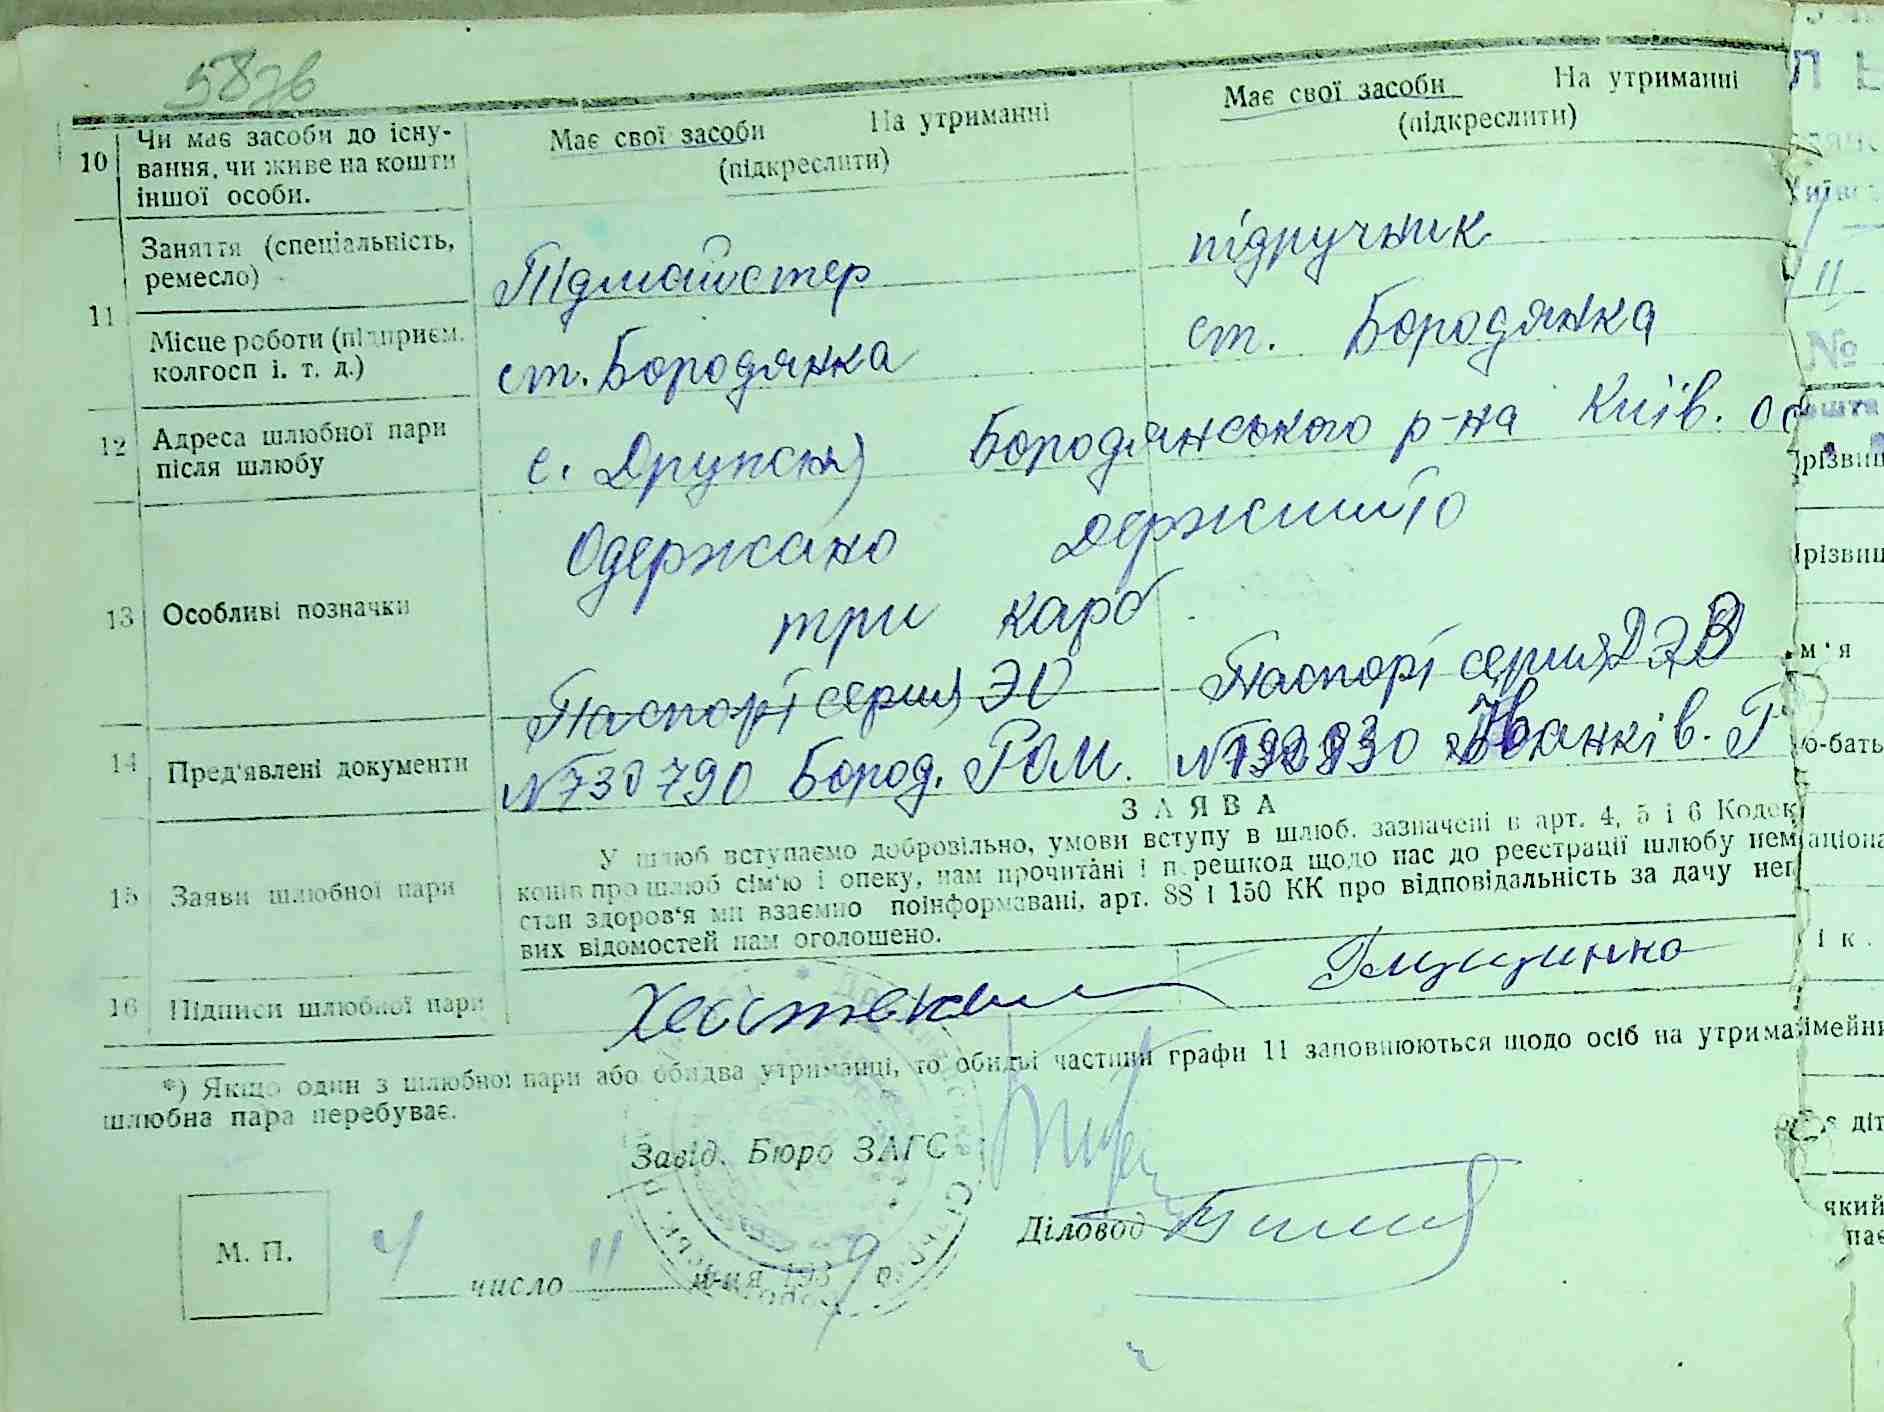 587в
10 Чи має засоби до існу- Має свої засоби На утриманні Має свої засоби На утриманні
вання, чи живе на кошти (підкреслити) (підкреслити)
іншої особи.
11 Заняття (спеціальність, Підмайстер підручник
ремесло)
Місце роботи (підприєм. ст. Бородянка ст. Бородянка
колгосп і. т. д.)
12 Адреса шлюбної пари с. Друпся Бородянського р-на Київ. об
після шлюбу
13 Особливі позначки Одержано держмито
три карб.
14 Пред'явлені документи Паспорт серия ЭО Паспорт серия
№ 730790 Бород. РОМ. № Іванків. Р
ЗАЯВА
15 Заяви шлюбної пари У шлюб вступаємо добровільно, умови вступу в шлюб. зазначені в арт. 4, 5 і 6 Кодек
конів про шлюб сім'ю і опеку, нам прочитані і перешкод щодо нас до реєстрації шлюбу нем
стан здоров'я ми взаємно поінформавані, арт. 88 і 150 КК про відповідальність за дачу неп
вих відомостей нам оголошено.
16 Підписи шлюбної пари
*) Якщо один з шлюбної пари або обидва утриманці, то обидві частини графи 11 заповнюються щодо осіб на утрима
шлюбна пара перебуває.
Завід. Бюро ЗАГС
Діловод
М. П.
4 число 11 м-ця 1939
№
м'я
о-бать